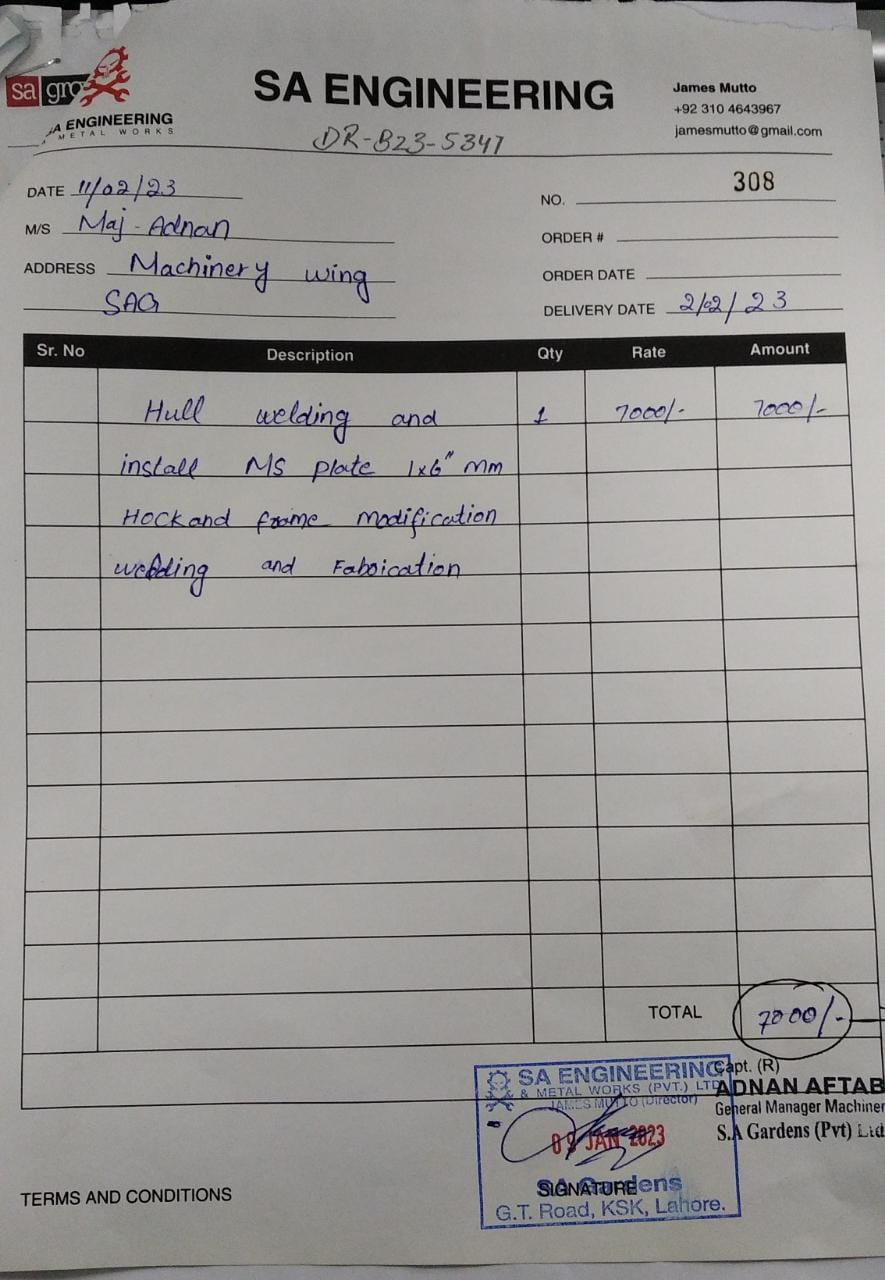 sa gro
SA ENGINEERING
METAL WORKS
SA ENGINEERING
DR-B23-5347
James Mutto
+92 310 4643967
jamesmutto@gmail.com
DATE 11/02/23
M/S Maj-Adnan
ADDRESS Machinery wing
SAG
NO. 308
ORDER #
ORDER DATE
DELIVERY DATE 2/02/23
Sr. No Description Qty Rate Amount
Hull welding and 1 7000/- 7000/-
install MS plate 1x6" mm
Hock and frame modification
welding and Fabrication
TOTAL 7000/-
SA ENGINEERING
& METAL WORKS (PVT.) LTD
JAMES MUTTO (Director)
JAN 2023
SA Gardens
SIGNATURE
G.T. Road, KSK, Lahore.
Capt. (R)
ADNAN AFTAB
General Manager Machiner
S.A Gardens (Pvt) Ltd
TERMS AND CONDITIONS